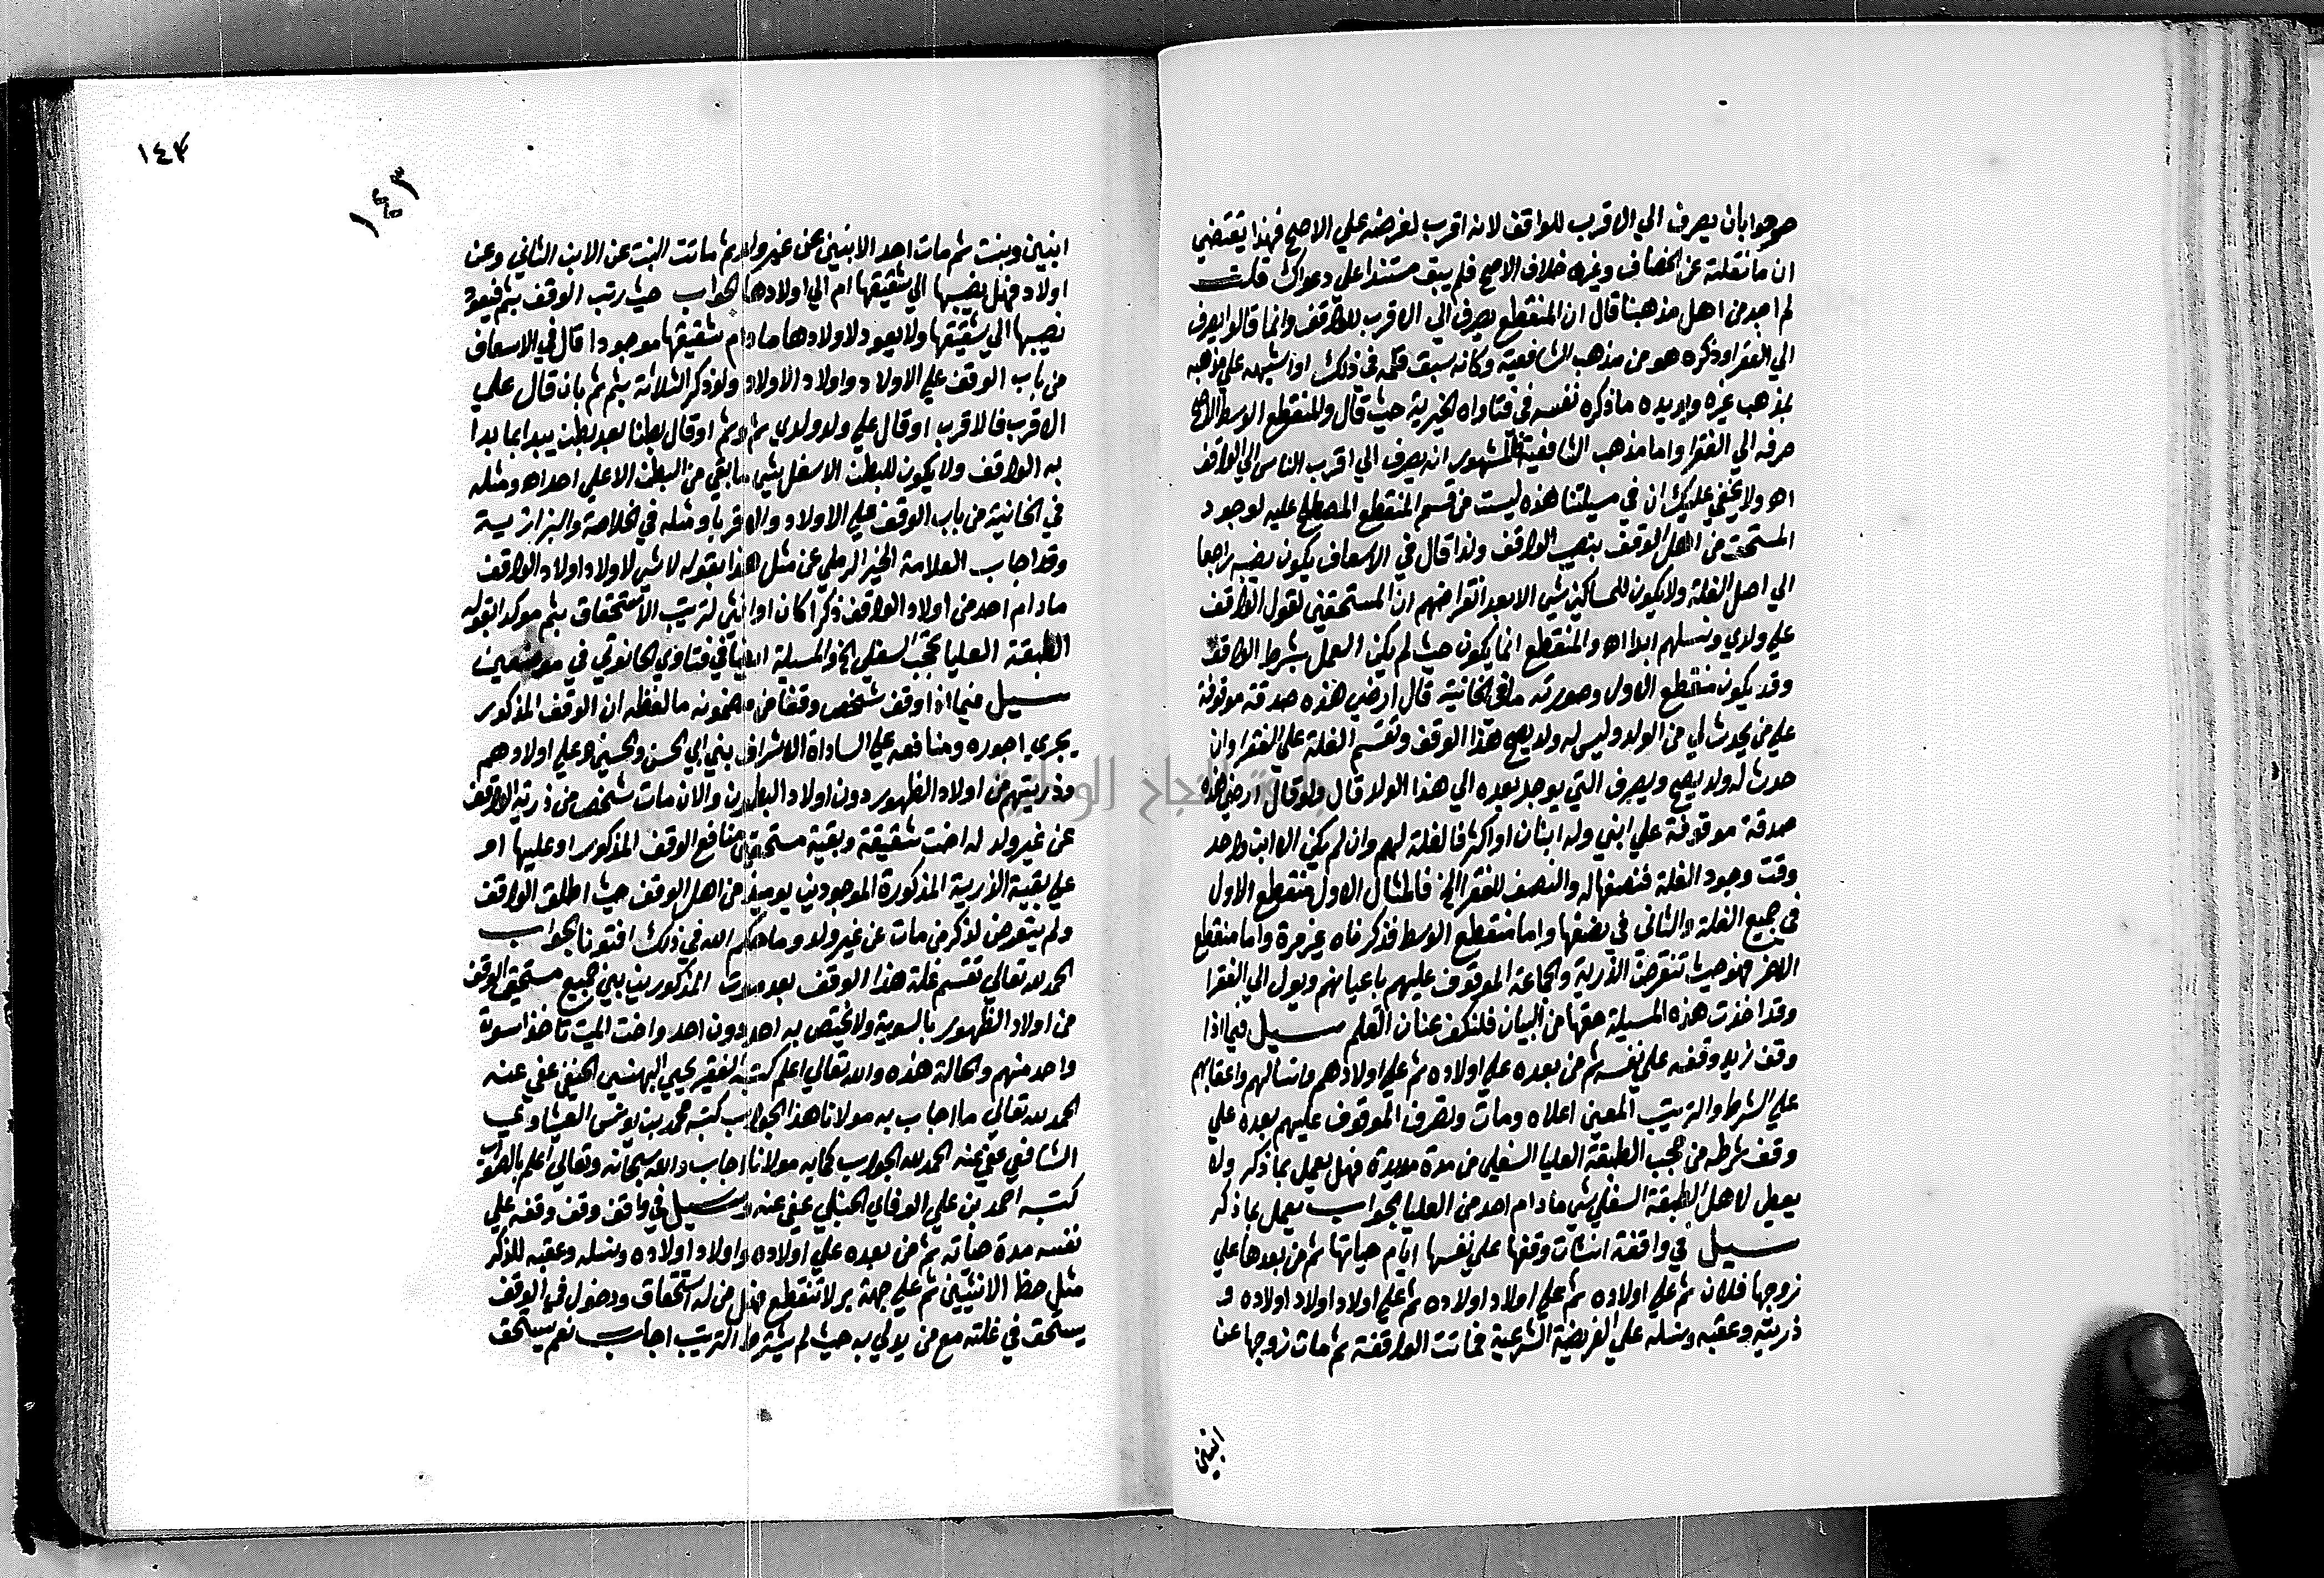 صرحوا بان يصرف الي الاقرب للواقف لانه اقرب لغرضه علي الاصح فهذا يقتضي
ان ما نقلته عن الخصاف وغيره خلاف الاصح فلم يبق مستندا علي دعواك قلت
لم اجد من اهل مذهبنا قال ان المنقطع يصرف الي الاقرب للواقف وانما قالوا يصرف
الي الفقرا وذكره هو من مذهب الشافعية وكانه سبق قلمه في ذلك او اشتبه علي مذهبه
بمذهب غيره ويويده ما ذكره نفسه في فتاواه الخيرية حيث قال وللمنقطع الوسط الاصح
صرفه الي الفقرا واما مذهب الشافعية فالمشهور انه يصرف الي اقرب الناس الي الواقف
اه ولا يخفي عليك ان في مسيلتنا هذه ليست من قسم المنقطع المصطلح عليه لوجود
المستحق من اهل الوقف بنصب الواقف ولذا قال في الاسعاف يكون نصيبه راجعا
الي اصل الغلة ولا يكون للمساكين شي الا بعد انقراضهم ان المستحقين لقول الواقف
علي ولدي ونسلهم ابدا اه والمنقطع انما يكون حيث لم يكن العمل بشرط الواقف
وقد يكون منقطع الاول وصورته ما في الخانية قال ارضي هذه صدقة موقوفة
علي من يحدث لي من الولد وليس له ولد يصح هذا الوقف وتقسم الغلة علي الفقرا وان
حدث له ولد يصح ويصرف التي يوجد بعده الي هذا الولد قال ولو قال ارضي هذه
صدقة موقوفة علي ابني وله ابنان او اكثر فالغلة لهم وان لم يكن الا ابن واحد
وقت وجود الغلة فنصفها له والنصف للفقرا الخ فالمثال الاول منقطع الاول
في جميع الغلة والثاني في نصفها واما منقطع الوسط فذكرناه غير مرة واما منقطع
الاخر فهو حيث تنقرض الذرية والجماعة الموقوف عليهم باعيانهم ويول الي الفقرا
وقد اخذت هذه المسيلة حقها من البيان فلنكف عنان القلم سيل فيما اذا
وقف زايد وقفه علي نفسه ثم من بعده علي اولاده ثم علي اولادهم وانسالهم واعقابهم
علي الشرط والترتيب المعين اعلاه ومات وتصرف الموقوف عليهم بعده علي
وقف شرطه من حجب الطبقة العليا السفلي من مدة مديدة فهل يعمل بما ذكر ولا
يعطي لاهل الطبقة السفلي شي ما دام احد من العليا الجواب يعمل بما ذكر
سيل في واقفة انشات وقفها علي نفسها ايام حياتها ثم من بعدها علي
زوجها فلان ثم علي اولاده ثم علي اولاد اولاده ثم علي اولاد اولاد اولاده و
ذريته وعقبه ونسله علي الفريضة الشرعية فماتت الواقفة ثم مات زوجها عن
ابنين
١٤٣
١٤٣
ابنين وبنت ثم مات احد الابنين عن غير ولد ثم ماتت البنت عن الابن الثاني وعن
اولاد فهل نصيبها الي شقيقها ام الي اولادها الجواب حيث رتب الوقف بثم فيعود
نصيبها الي شقيقها ولا يعود لاولادها ما دام شقيقها موجودا قال في الاسعاف
من باب الوقف علي الاولاد واولاد الاولاد ولو ذكر الثلاثة بثم ثم بان قال علي
الاقرب فالاقرب او قال علي ولد ولدي ثم وثم او قال بطنا بعد بطن يبدا بما بدا
به الواقف ولا يكون للبطن الاسفل شي ما بقي من البطن الاعلي احد اه ومثله
في الخانية من باب الوقف علي الاولاد والاقربا ومثله في الخلاصة والبزازية
وقد اجاب العلامة الخير الرملي عن مثل هذا بقوله لا شي لاولاد اولاد الواقف
ما دام احد من اولاد الواقف ذكرا كان او انثي لترتيب الاستحقاق بثم موكدا بقوله
الطبقة العليا تحجب السفلي الخ والمسيلة ايضا في فتاوي الحانوتي في موضعين
سيل فيما اذا وقف شخص وقفا من مضمونه ما لفظه ان الوقف المذكور
يجري اجوره ومنافعه علي السادة الاشراف بني ابي الحسن والحسين وعلي اولادهم
وذريتهم من اولاد الظهور دون اولاد البطون والان مات شخص من ذرية الواقف
عن غير ولد له اخت شقيقة وبقية مستحقين منافع الوقف المذكور او عليها ام
علي بقية الذرية المذكورة الموجودين يوميذ من اهل الوقف حيث اطلق الواقف
ولم يتعرض لذكر من مات عن غير ولد وما حكم الله في ذلك افتونا الجواب
الحمد لله تعالي تقسم غلة هذا الوقف بعد موت المذكورين بين جميع مستحقي الوقف
من اولاد الظهور بالسوية ولا يختص به احد دون احد واخت الميت تاخذ اسوة
واحد منهم والحالة هذه والله تعالي اعلم كتبه الفقير يحيي البهنسي الحنفي عفي عنه
الحمد لله تعالي ما اجاب به مولانا هذا الجواب كتبه محمد بن يونس العيثاوي
الشافعي عفي عنه الحمد لله الجواب كما به مولانا اجاب والله سبحانه وتعالي اعلم بالصواب
كتبه احمد بن علي الوفاي الحنبلي عفي عنه سيل في واقف وقف وقفه علي
نفسه مدة حياته ثم من بعده علي اولاده واولاد اولاده ونسله وعقبه للذكر
مثل حظ الانثيين ثم علي جهة بر لا تنقطع فهل من له استحقاق ودخول في الوقف
يستحق في غلته مع من يدلي به حيث لم يشترط الترتيب اجاب نعم يستحق